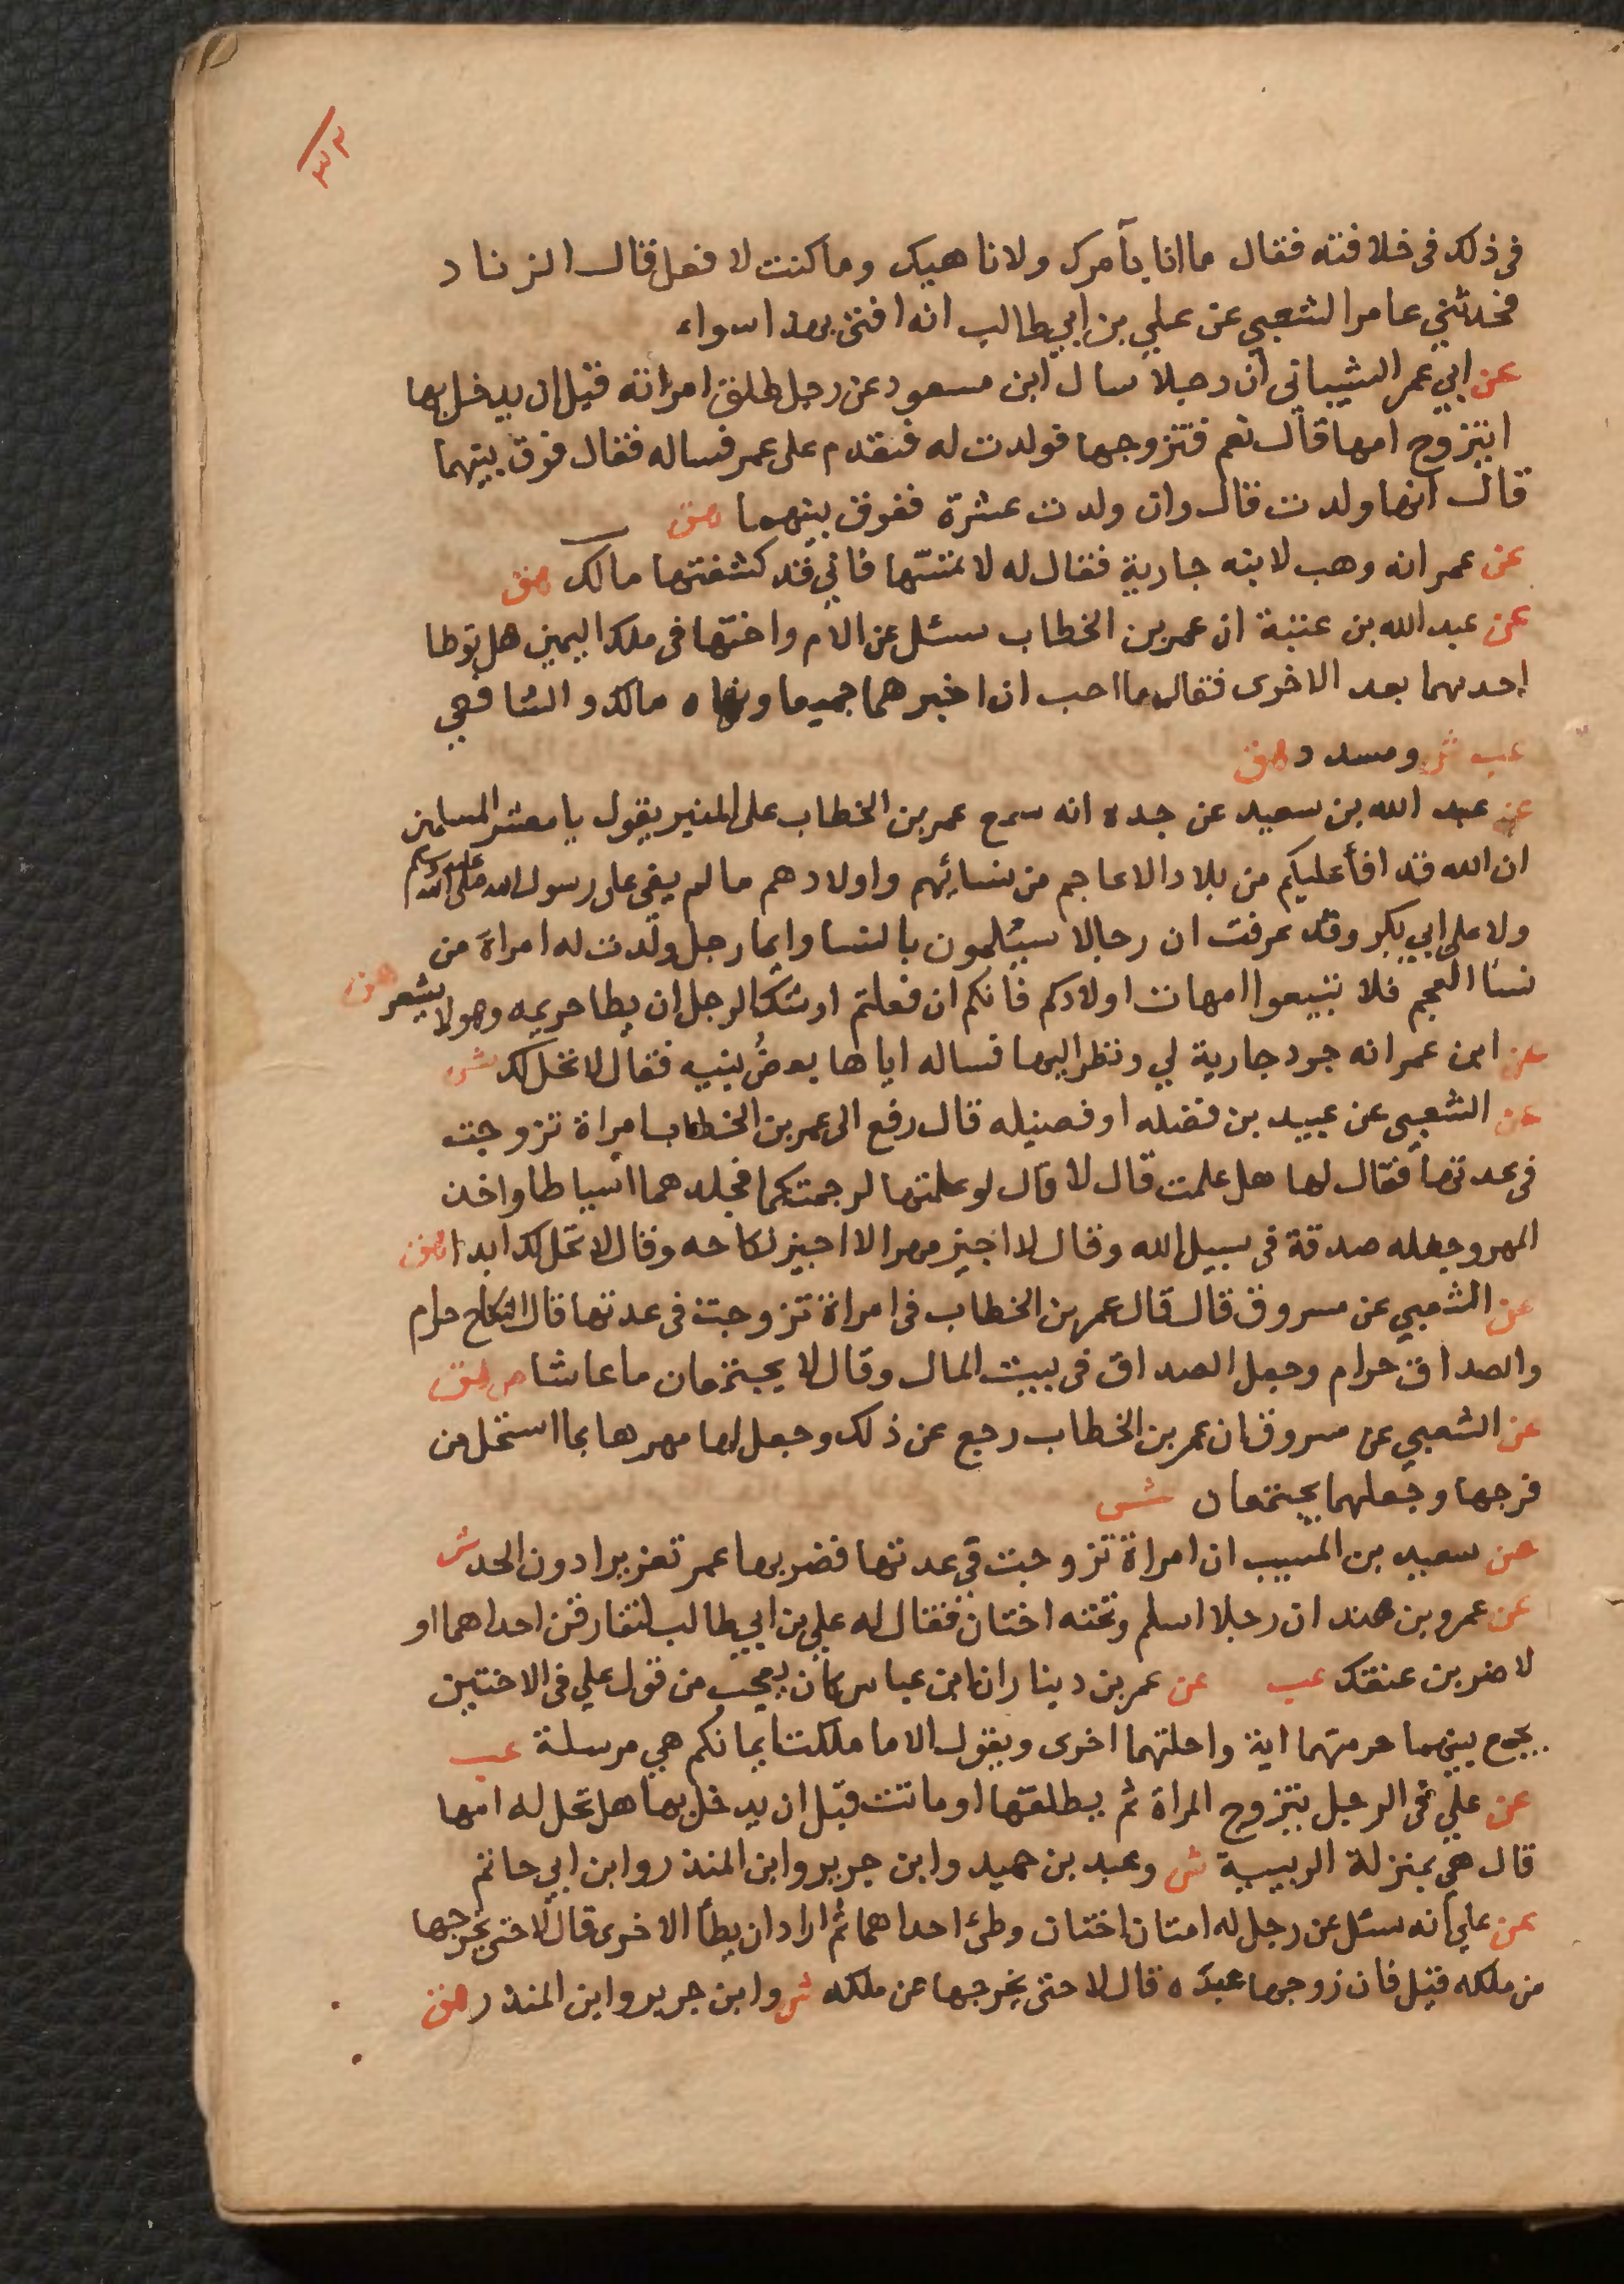 ٣٣
فى ذلك فى خلافته فقال ما انا بآمرك ولا ناهيك وما كنت لا فعل قال الزناد
فحدثني عامر الشعبي عن علي بن ابي طالب انه افتى بهذا سواء
عن ابي عمر الشيبانى ان رجلا سال ابن مسعود عن رجل طلق امراته قبل ان يدخل بها
ايتزوج امها قال نعم فتزوجها فولدت له فقدم على عمر فساله فقال فرق بينهما
قال انها ولدت قال وان ولدت عشرة ففرق بينهما هق
عن عمر انه وهب لابنه جارية فقال له لا تمسّها فاني قد كشفتها مالك هق
عن عبد الله بن عتبة ان عمر بن الخطاب سئل عن الام واختها فى ملك اليمين هل توطا
احديهما بعد الاخرى فقال ما احب ان اخبرهما جميعا ونهاه مالك والشافعي
عب ش ومسدد هق
عن عبد الله بن سعيد عن جده انه سمع عمر بن الخطاب على المنبر يقول يا معشر المسلمين
ان الله قد افأ عليكم من بلاد الاعاجم من نسائهم واولادهم ما لم يفئ على رسول الله صلى الله عليه وسلم
ولا على ابي بكر وقد عرفت ان رجالا سيُلمون بالنسا وايما رجل ولدت له امراة من
نسا العجم فلا تبيعوا امهات اولادكم فانكم ان فعلتم اوشك الرجل ان يطا حريمه وهو لا يشعر هق
عن ابن عمر انه جرد جارية لي ونظر اليها فساله اياها بعضُ بنيه فقال لا تحل لك ش
عن الشعبي عن عبيد بن فضله او فضيله قال رفع الى عمر بن الخطاب امراة تزوجت
فى عدتها فقال لها هل علمت قال لا قال لو علمتها لرجمتكما فجلدهما اسياطا واخذ
المهر وجعله صدقة فى سبيل الله وقال لا اجيز مهرا لا اجيز نكاحه وقال لا تحل لك ابدا هق
عن الشعبي عن مسروق قال قال عمر بن الخطاب فى امراة تزوجت فى عدتها قال النكاح حرام
والصداق حرام وجعل الصداق فى بيت المال وقال لا يجتمعان ما عاشا ص هق
عن الشعبي عن مسروق ان عمر بن الخطاب رجع عن ذلك وجعل لها مهرها بما استحل من
فرجها وجعلهما يجتمعان ش
عن سعيد بن المسيب ان امراة تزوجت في عدتها فضربها عمر تعزيرا دون الحد ش
عن عمرو بن هند ان رجلا اسلم وتحته اختان فقال له علي بن ابي طالب لتفارقن احداهما او
لاضربن عنقك عب عن عمر بن دينار ان ابن عباس كان يعجب من قول علي فى الاختين
يجمع بينهما حرمتهما اية واحلتهما اخرى ويقول الا ما ملكت ايمانكم هي مرسلة عب
عن علي فى الرجل يتزوج المراة ثم يطلقها او ماتت قبل ان يدخل بها هل تحل له امها
قال هي بمنزلة الربيبة ش وعبد بن حميد وابن جرير وابن المنذر وابن ابي حاتم
عن علي انه سئل عن رجل له امتان اختان وطئ احداهما ثم اراد ان يطأ الاخرى قال لا حتى يخرجها
من ملكه قيل فان زوجها عبده قال لا حتى يخرجها عن ملكه ش وابن جرير وابن المنذر هق